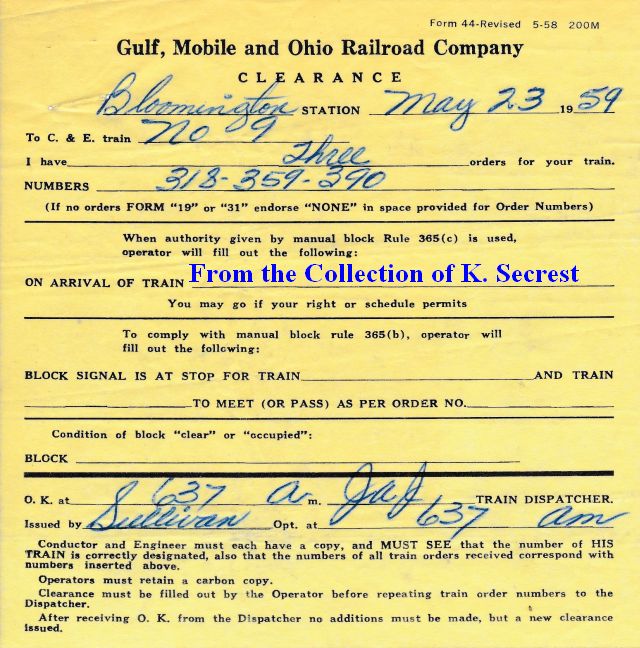 Form 44-Revised 5-58 200M
Gulf, Mobile and Ohio Railroad Company
CLEARANCE
Bloomington STATION May 23 1959
To C. & E. train No 9
I have Three orders for your train.
NUMBERS 318-359-390
(If no orders FORM "19" or "31" endorse "NONE" in space provided for Order Numbers)
When authority given by manual block Rule 365(c) is used,
operator will fill out the following:
ON ARRIVAL OF TRAIN From the Collection of K. Secrest
You may go if your right or schedule permits
To comply with manual block rule 365(b), operator will
fill out the following:
BLOCK SIGNAL IS AT STOP FOR TRAIN AND TRAIN
TO MEET (OR PASS) AS PER ORDER NO.
Condition of block "clear" or "occupied":
BLOCK
O. K. at 637 A m. JAJ TRAIN DISPATCHER.
Issued by Sullivan Opt. at 637 am
Conductor and Engineer must each have a copy, and MUST SEE that the number of HIS
TRAIN is correctly designated, also that the numbers of all train orders received correspond with
numbers inserted above.
Operators must retain a carbon copy.
Clearance must be filled out by the Operator before repeating train order numbers to the
Dispatcher.
After receiving O. K. from the Dispatcher no additions must be made, but a new clearance
issued.